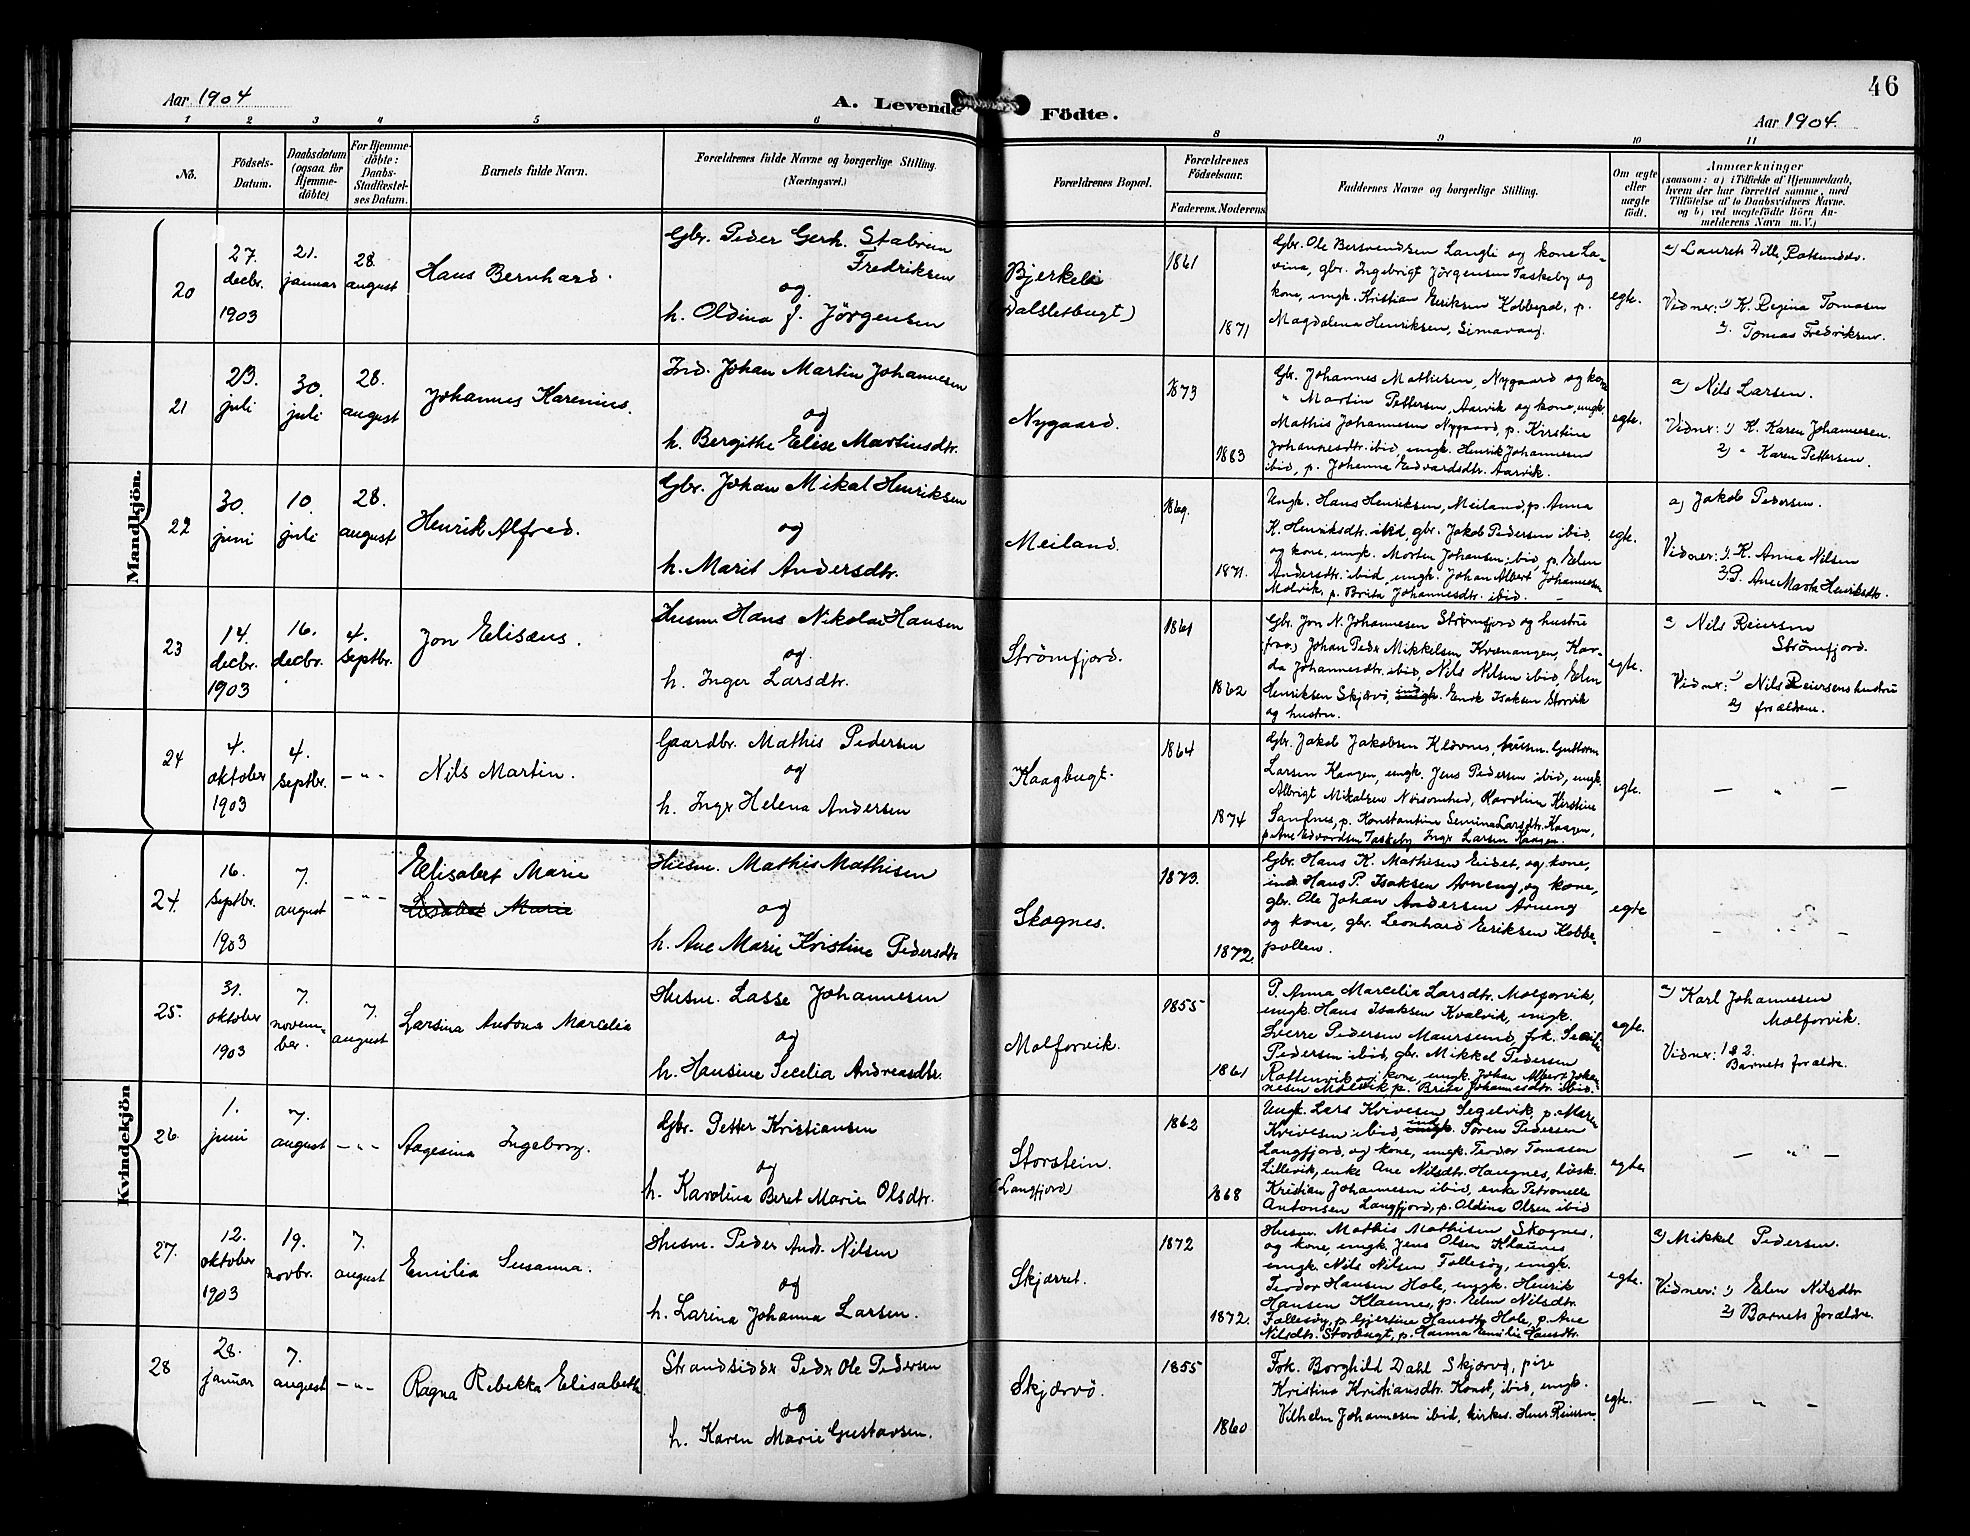 46
Aar 1904
A. Levende Födte.
Aar 1904.
1 2 3 4 5 6 8 9 10 11
No.
Födsels-
Datum.
Daabsdatum
(ogsaa for
Hjemme-
döbte)
For Hjemme-
döbte:
Daabs-
Stadfæstel-
ses Datum.
Barnets fulde Navn.
Forældrenes fulde Navne og borgerlige Stilling.
(Næringsvei.)
Forældrenes Bopæl.
Forældrenes
Födselsaar.
Faderens. Moderens.
Faddernes Navne og borgerlige Stilling.
Om ægte
eller
uægte
födt.
Anmærkninger
(saasom: a) i Tilfælde af Hjemmedaab,
hvem der har forrettet samme, med
Tilföielse af to Daabsvidners Navne.
og b) ved uægtefödte Börn An-
melderens Navn m.V.)
Mandkjön.
20
27.
decbr.
1903
21.
januar
28.
august
Hans Bernhard.
Gbr. Peder Gerh. Stabrun
Fredriksen
og
h. Oldina f. Jörgensen
Bjerkeli
Dalsletbugt)
1861
1871
Gbr. Ole Bersvendsen Langli og kone La-
vina, gbr. Ingebrigt Jörgensen Taskeby og
kone, ungk. Kristian Eriksen Kobbepol, p.
Magdalena Henriksen, Simavaag.
egte.
a) Laurets Dill, Rotsundv.
Vidner: 1) K. Regina Tomasen
2. Tomas Fredriksen.
21
23.
juli
30.
juli
28.
august
Johannes Karenius.
Ind. Johan Martin Johannesen
og
h. Bergithe Elise Martinsdtr.
Nygaard.
1873
1883
Gbr. Johannes Mathisen, Nygaard og kone
" Martin Pettersen, Aarvik og kone, ungk.
Mathis Johannesen Nygaard, p. Kirstine
Johannesdtr. ibid, ungk. Henrik Johannesen
ibid, p. Johanna Edvardsdtr. Aarvik.
egte.
a) Nils Larsen.
Vidner: 1) K. Karen Johannesen.
2) " Karen Pettersen.
22
30.
juni
10.
juli
28.
august
Henrik Alfred.
Gbr. Johan Mikal Henriksen
og
h. Marit Andersdtr.
Meiland.
1869.
1871.
Ungk. Hans Henriksen, Meiland, p. Anna
K. Henriksdtr. ibid, gbr. Jakob Pedersen ibid
og kone, ungk. Morten Johansen ibid, p. Elen
Andersdtr. ibid, ungk. Johan Albert Johannesen
Molvik, p. Brita Johannesdtr. ibid.
egte.
a) Jakob Pedersen.
Vidner: 1. K. Anna Nilsen
2. P. Ane Marta Henriksdtr.
23
14.
decbr.
1903
16.
decbr.
4.
septbr.
Jon Elisæus.
Husm. Hans Nikolai Hansen
og
h. Inger Larsdtr.
Strömfjord.
1861
1862
Gbr. Jon N. Johannesen Strömfjord og hustru
Johan Peder Mikkelsen Kvænangen, Kar-
da Johannesdtr. ibid, Nils Nilsen ibid, Elen
Henriksen Skjærvö, ungk. Enok Isaksen Storvik
og hustru.
egte.
a) Nils Reiersen
Strömfjord.
Vidner: 1) Nils Reiersens hustru
2) forældrene.
24
4.
oktober
1903
4.
septbr.
— " —
Nils Martin.
Gaardbr. Mathis Pedersen
og
h. Inger Helena Andersen
Kaagbugt.
1864
1874
Gbr. Jakob Jakobsen Kløvnes, husm. Guttorm
Larsen Kaagen, ungk. Jens Pedersen ibid, ungk.
Albrigt Mikalsen, Karolina Kirstine
Sanfnes, p. Konstantine Semina Larsdtr. Kaagen,
p. Ane Edvardsen Taskeby Inger Larsen Kaagen.
egte.
— " —
Kvindekjön
24.
16.
septbr.
1903
7.
august
— " —
Elisabet Marie
Lisabet Marie
Husm. Mathis Mathisen
og
h. Ane Marie Kristine Pedersdtr
Skognes.
1873.
1872.
Gbr. Hans K. Mathisen Eidet, og kone,
ind. Hans P. Isaksen Arneng, og kone,
gbr. Ole Johan Andersen Arneng
og kone, gbr. Leonhard Eriksen Kobbe-
pollen.
egte
— " —
25.
31.
oktober
1903
7.
novem-
ber.
7.
august
Larsina Antona Marcelia
Husm. Lasse Johannesen
og
h. Hansine Secelia Andreasdtr.
Molforvik.
1855
1861
P. Anna Marcelia Larsdtr. Molforvik,
ungk. Hans Isaksen Kvalvik, ungk.
Sverre Pedersen Maursund, frk. Secilie
Pedersen ibid, gbr. Mikkel Pedersen
Rottenvik og kone, ungk. Johan Albert Johan-
nesen Molvik, p. Brita Johannesdtr. ibid.
egte.
a) Karl Johannesen
Molforvik.
Vidner: 1 & 2.
Barnets forældre.
26.
1.
juni
7.
august
— " —
Aagesina Ingeborg.
Gbr. Petter Kristiansen
og
h. Karolina Beret Marie Olsdtr.
Storstein.
(Langfjord)
1862
1868
Ungk. Lars Kvivesen Segelvik, p. Maren
Kvivesen ibid, ind. ungk. Sören Pedersen
Langfjord, og kone, ungk. Teodor Tomasen
Lillevik, enke Ane Nilsdtr. Haugnes, lösk.
Kristian Johannesen ibid, enke Petronelle
Antonsen Langfjord, p. Oldine Olsen ibid
egte.
— " —
27.
12.
oktober
1903
19.
novbr.
7.
august
Emilia Susanna.
Husm. Peder Andr. Nilsen
og
h. Larina Johanna Larsen.
Skjærret.
1872
1872.
Husm. Mathis Mathisen Skognes,
og kone, ungk. Jens Olsen Klaunes
ungk. Nils Nilsen Follesöy, ungk.
Teodor Hansen Hole, ungk. Henrik
Hansen Klaunes, p. Elen Nilsdtr.
Follesöy, p. Gjertine Hansdtr. Hole, p. Ane
Nilsdtr. Storbugt, p. Hanna Emilie Hansdtr.
egte.
a) Mikkel Pedersen.
Vidner: 1) Elen Nilsdtr
2) Barnets forældre.
28
28.
januar
7.
august
— " —
Ragna Rebekka Elisabeth.
Strandsidder Peder Ole Pedersen
og
h. Karen Marie Gustavsen.
Skjærvö.
1855
1860
Frk. Borghild Dahl Skjærvö, pige
Kristina Kristiansdtr. Konst, ibid, ungk.
Vilhelm Johannesen ibid, kirkes. Hans Reiersen
egte.
— " —